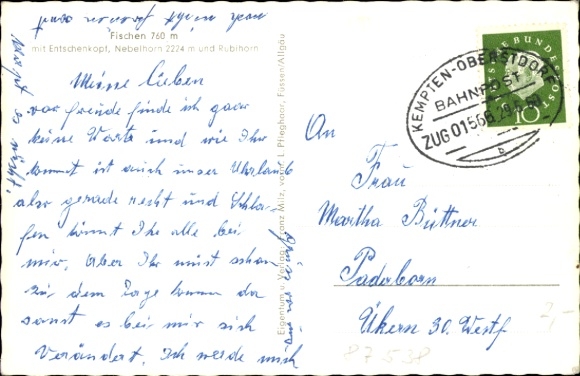 Fischen 760 m
mit Entschenkopf, Nebelhorn 2224 m und Rubihorn
Meine Lieben
vor freude finde ich gaar
keine Worte und wie Ihr
kommt ist auch unser Uhrlaub
also gerade recht und Schla-
fen könnt Ihr alle bei
mir, Aber Ihr müst schon
zu dem Tage kommen da
sonst es bei mir sich
Verändert, Ich werde mich
Eigentum u. Verlag Franz Milz, vorm. L. Pfleghaar, Füssen/Allgäu
An
Frau
Martha Büttner
Padaborn
Ükern 30. Westf
KEMPTEN-OBERSTDORF
BAHNPOST
ZUG 01566
b
DEUTSCHE BUNDESPOST
10
87538